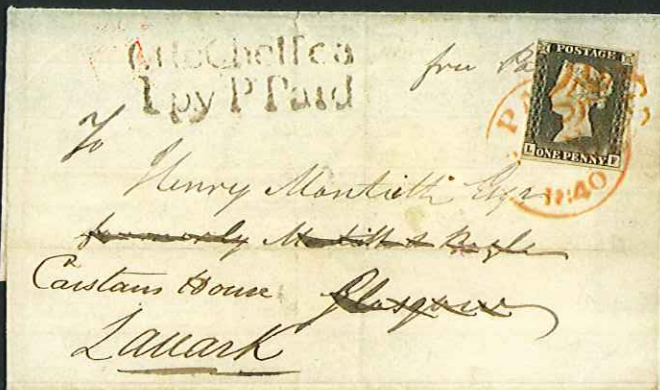 Chelsea
1py P Paid
free
POSTAGE
PA
ONE PENNY
L F
1840
To
Henry Monteith Esqr
formerly
Carstairs House Glasgow
Lanark